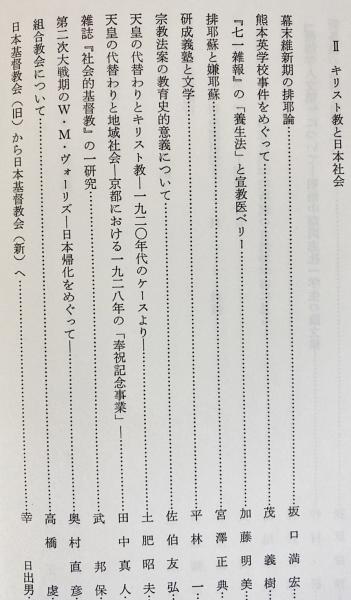 Ⅱ　キリスト教と日本社会
幕末維新期の排耶論……坂口満宏
熊本英学校事件をめぐって……茂義樹
『七一雑報』の「養生法」と宣教医ベリー……加藤明美
排耶蘇と嫌耶蘇……宮澤正典
研成義塾と文学……平林一
宗教法案の教育史的意義について……佐伯友弘
天皇の代替わりとキリスト教―一九二〇年代のケースより―……土肥昭夫
天皇の代替わりと地域社会―京都における一九二八年の「奉祝記念事業」―……田中真人
雑誌『社会的基督教』の一研究……武邦保
第二次大戦期のW・M・ヴォーリズ―日本帰化をめぐって―……奥村直彦
組合教会について……高橋虔
日本基督教会（旧）から日本基督教会（新）へ……幸日出男